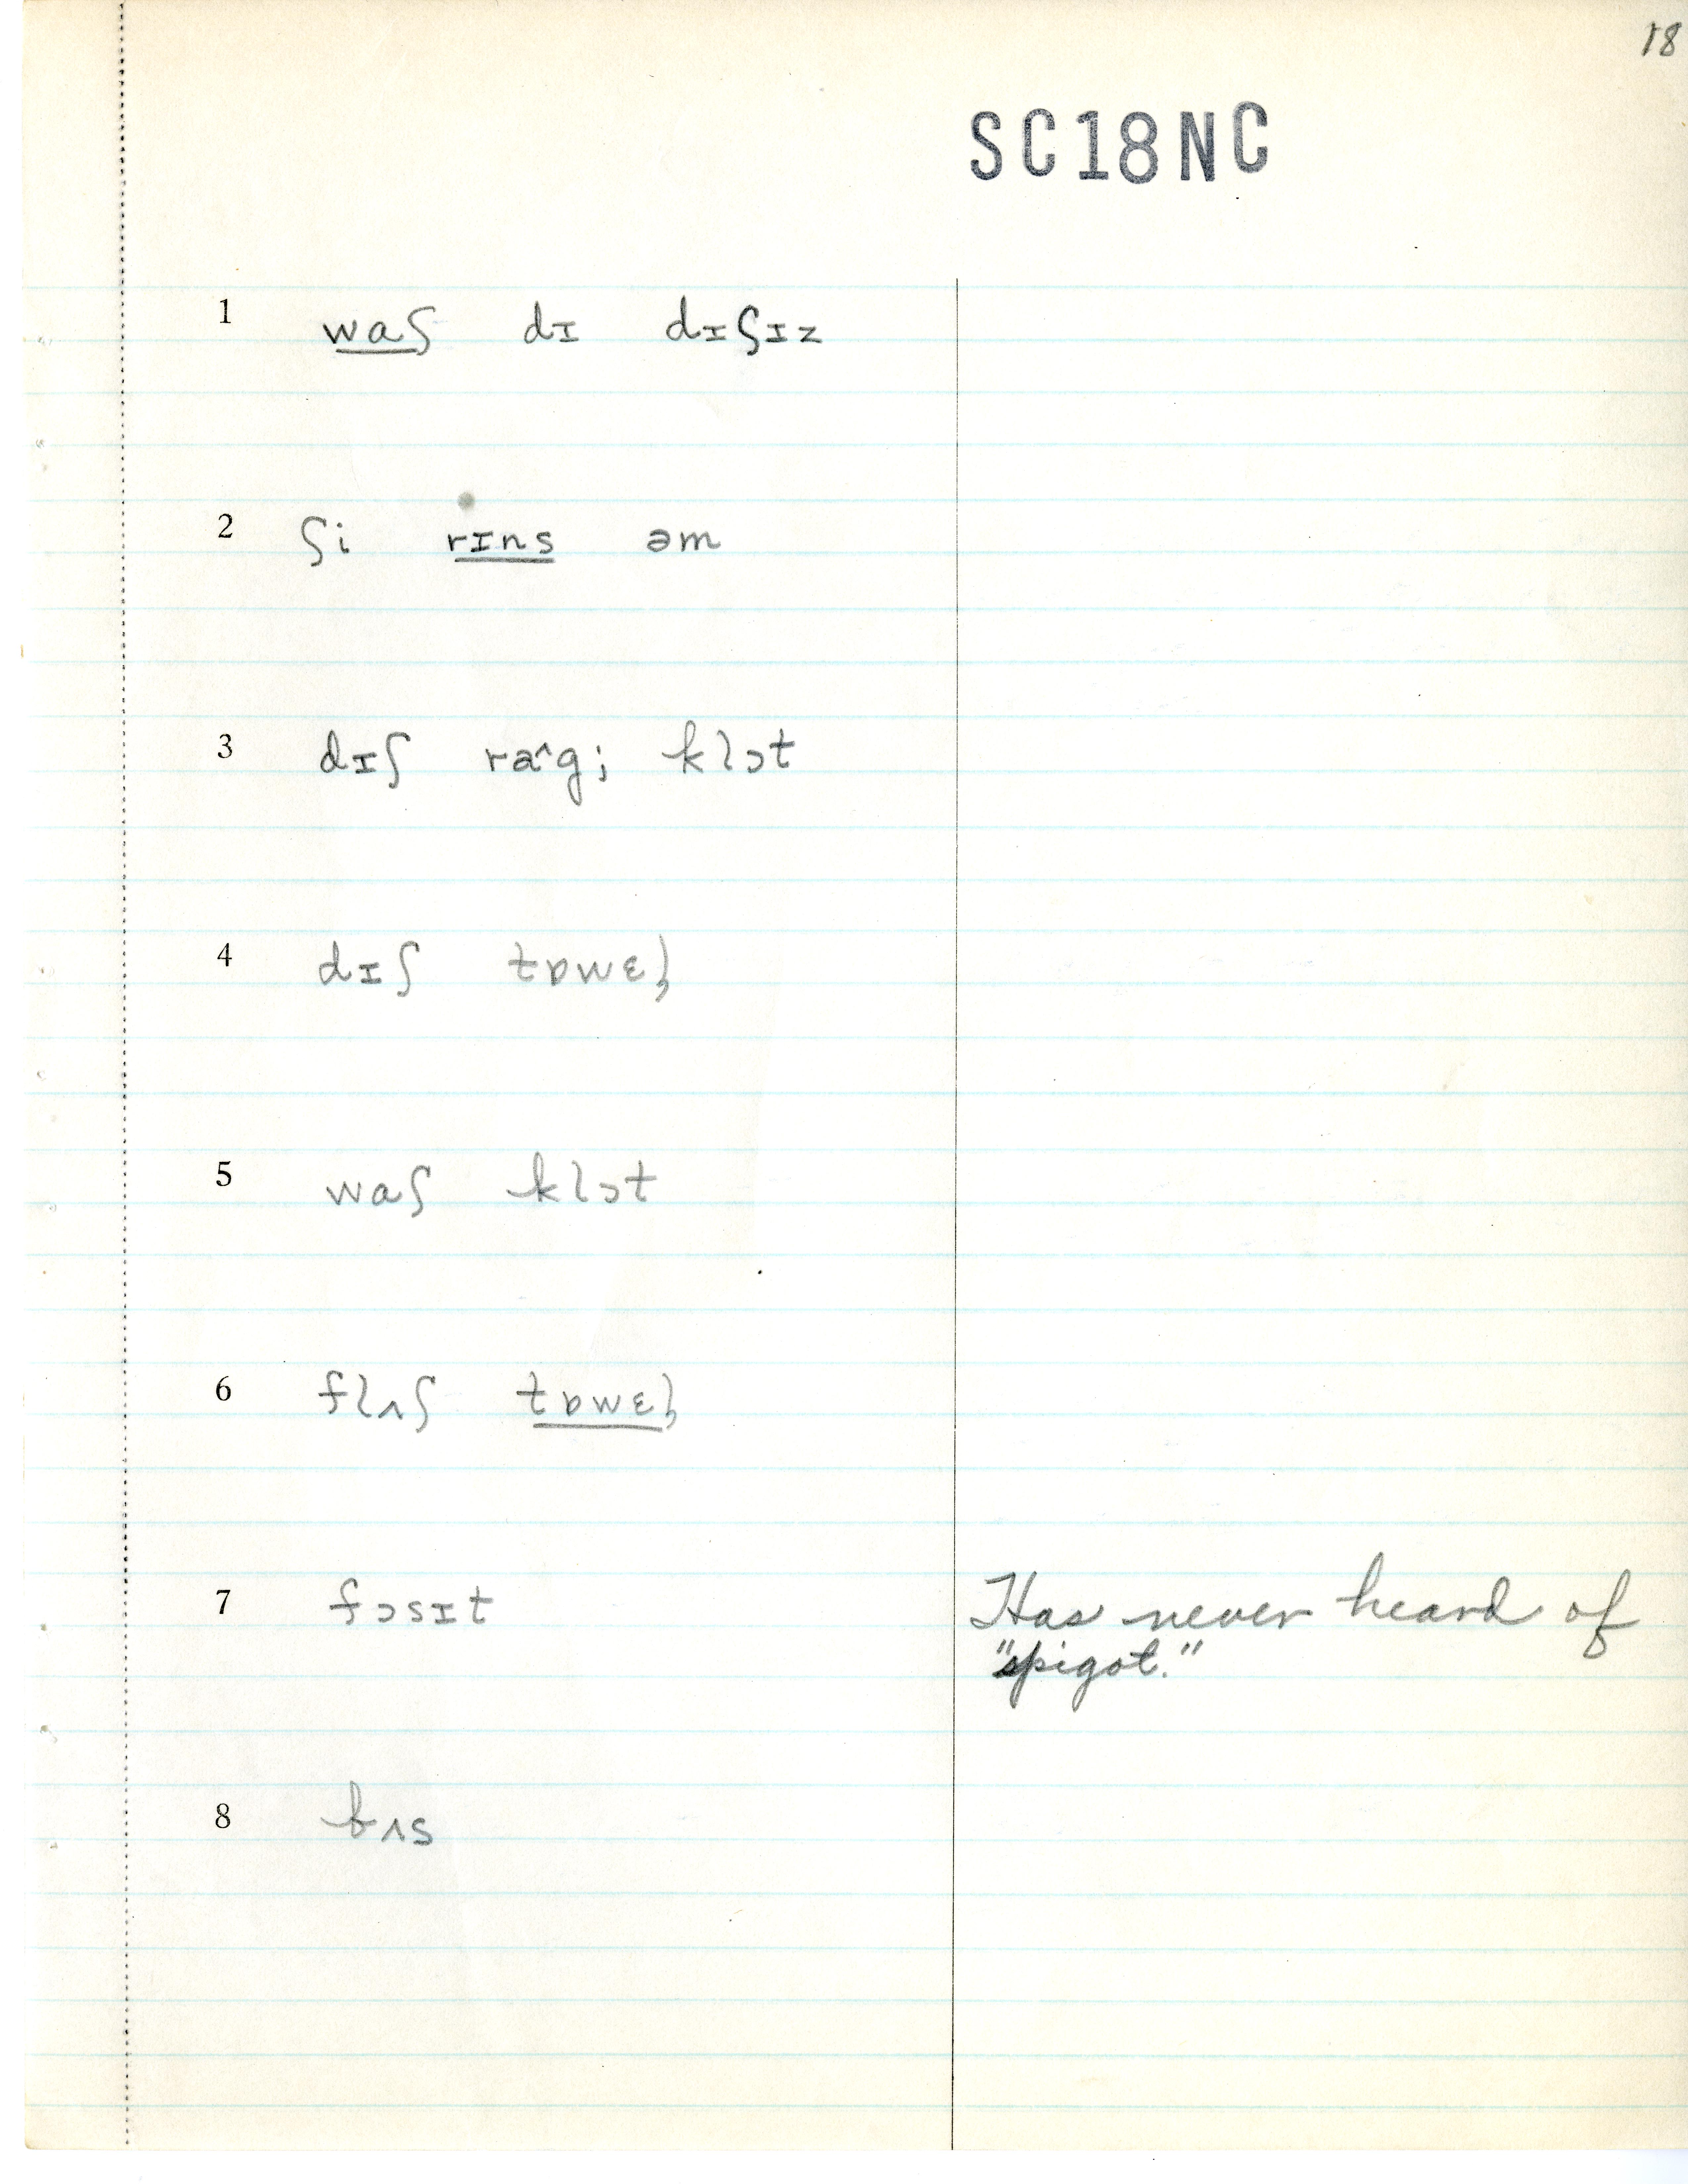 18
SC18NC
1 waʃ dɪ dɪʃɪz
2 ʃi rɪns əm
3 dɪʃ ra^g; klɔt
4 dɪʃ tɒwɛl
5 waʃ klɔt
6 flʌʃ tɒwɛl
7 fɔsɪt Has never heard of
"spigot."
8 bʌs